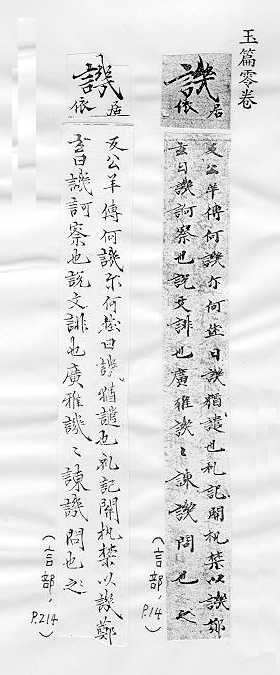 玉篇零卷
譏
居
依
反公羊傳何譏尔何曰譏猶譴也礼記開禁以譏鄭
玄曰譏訶察也說文誹也廣雅譏〻諫譏問也之
(言部,P.14)
譏
居
依
反公羊傳何譏尔何曰譏猶譴也礼記開禁以譏鄭
玄曰譏訶察也說文誹也廣雅譏〻諫譏問也之
(言部,P.214)